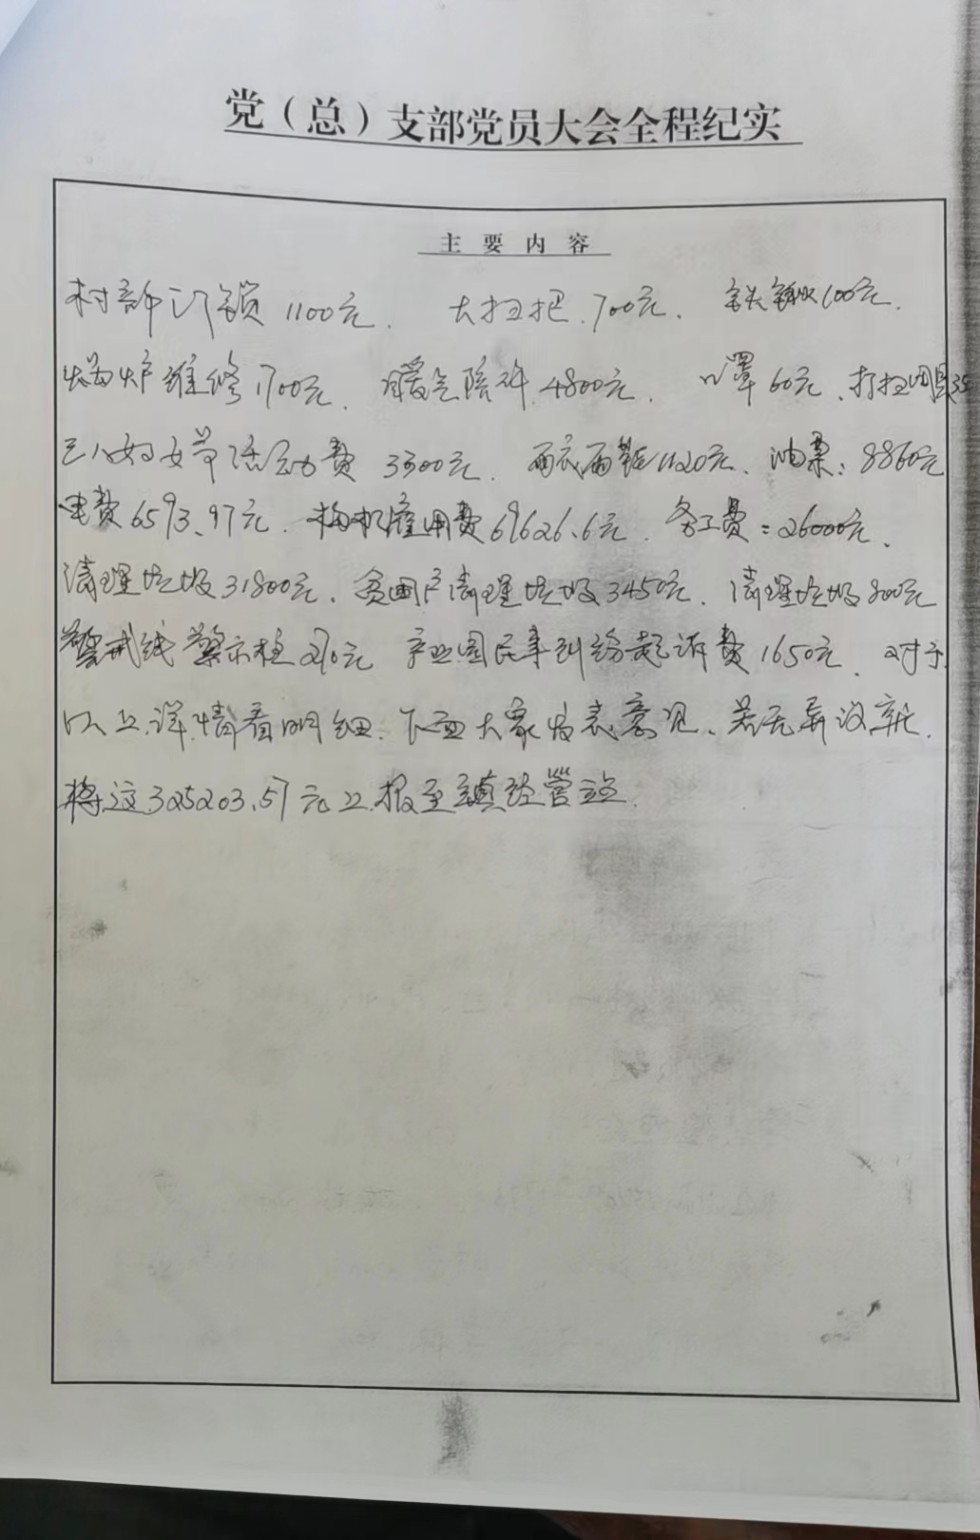 党（总）支部党员大会全程纪实
主要内容
村部门锁1100元、大扫把、700元、铁锹100元、
锅炉维修1700元、暖气陪料、4800元、口罩60元、打扫用具35
三八妇女节活动费3300元、雨衣雨鞋1120元、油票：8860元
电费6593.97元、雇用费69626.6元、务工费：26000元、
清理垃圾31800元、贫困户清理垃圾3450元、清理垃圾800元
警戒线警示柱270元 产业园民事纠纷起诉费1650元、对于
以上详情看明细、下面大家发表意见、若无异议、
将这325203.57元上报至镇经管站.